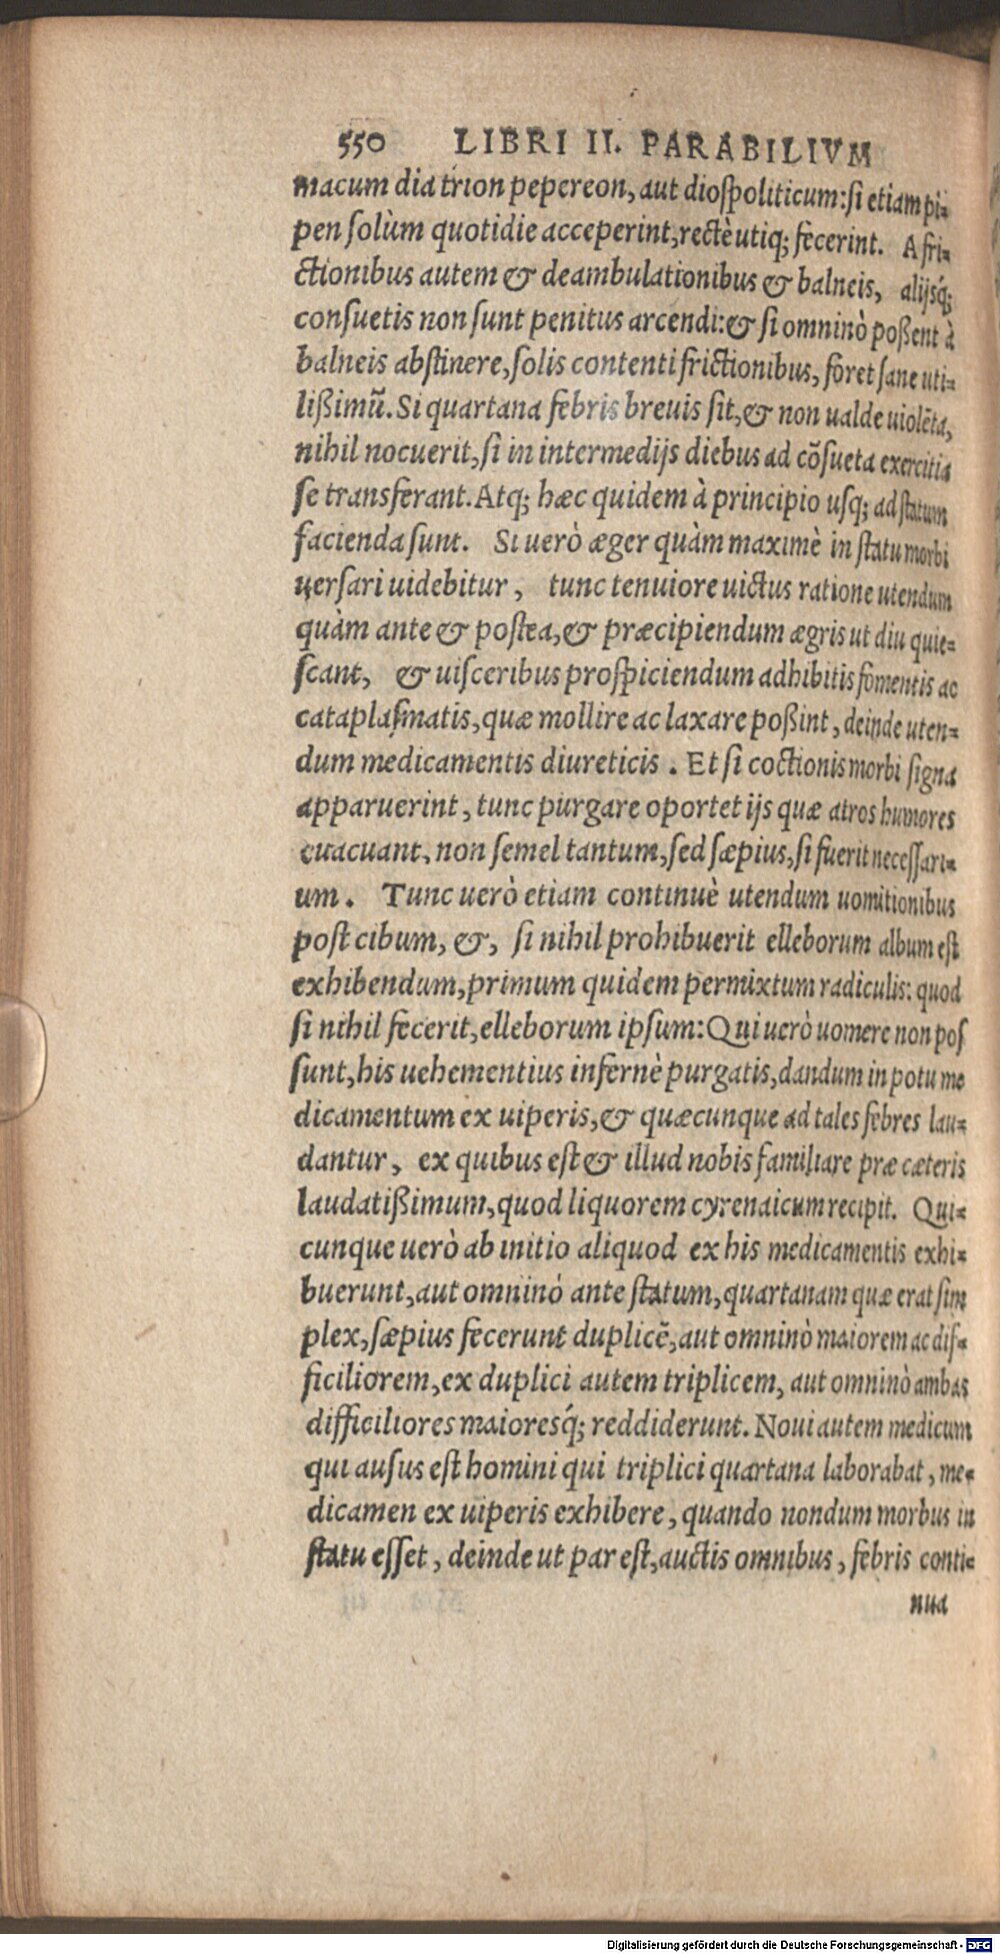 550 LIBRI II. PARABILIVM
macum dia trion pepereon, aut diospoliticum: si etiam pi-
pen solùm quotidie acceperint, rectè utiq; fecerint. A fri-
ctionibus autem & deambulationibus & balneis, alijsq́;
consuetis non sunt penitus arcendi: & si omninò possent à
balneis abstinere, solis contenti frictionibus, foret sane uti-
lissimũ. Si quartana febris breuis sit, & non ualde uiolẽta,
nihil nocuerit, si in intermedijs diebus ad cõsueta exercitia
se transferant. Atq; hæc quidem à principio usq; ad statum
facienda sunt. Si uerò æger quàm maximè in statu morbi
uersari uidebitur, tunc tenuiore uictus ratione utendum
quàm ante & postea, & præcipiendum ægris ut diu quie-
scant, & uisceribus prospiciendum adhibitis fomentis ac
cataplasmatis, quæ mollire ac laxare possint, deinde uten-
dum medicamentis diureticis. Et si coctionis morbi signa
apparuerint, tunc purgare oportet ijs quæ atros humores
euacuant, non semel tantum, sed sæpius, si fuerit necessari-
um. Tunc uerò etiam continuè utendum uomitionibus
post cibum, &, si nihil prohibuerit elleborum album est
exhibendum, primum quidem permixtum radiculis: quod
si nihil fecerit, elleborum ipsum: Qui uerò uomere non pos
sunt, his uehementius infernè purgatis, dandum in potu me
dicamentum ex uiperis, & quæcunque ad tales febres lau-
dantur, ex quibus est & illud nobis familiare præ cæteris
laudatissimum, quod liquorem cyrenaicum recipit. Qui-
cunque uerò ab initio aliquod ex his medicamentis exhi-
buerunt, aut omninò ante statum, quartanam quæ erat sim
plex, sæpius fecerunt duplicẽ, aut omninò maiorem ac dif-
ficiliorem, ex duplici autem triplicem, aut omninò ambas
difficiliores maioresq́; reddiderunt. Noui autem medicum
qui ausus est homini qui triplici quartana laborabat, me-
dicamen ex uiperis exhibere, quando nondum morbus in
statu esset, deinde ut par est, auctis omnibus, febris conti-
nua
Digitalisierung gefördert durch die Deutsche Forschungsgemeinschaft - DFG